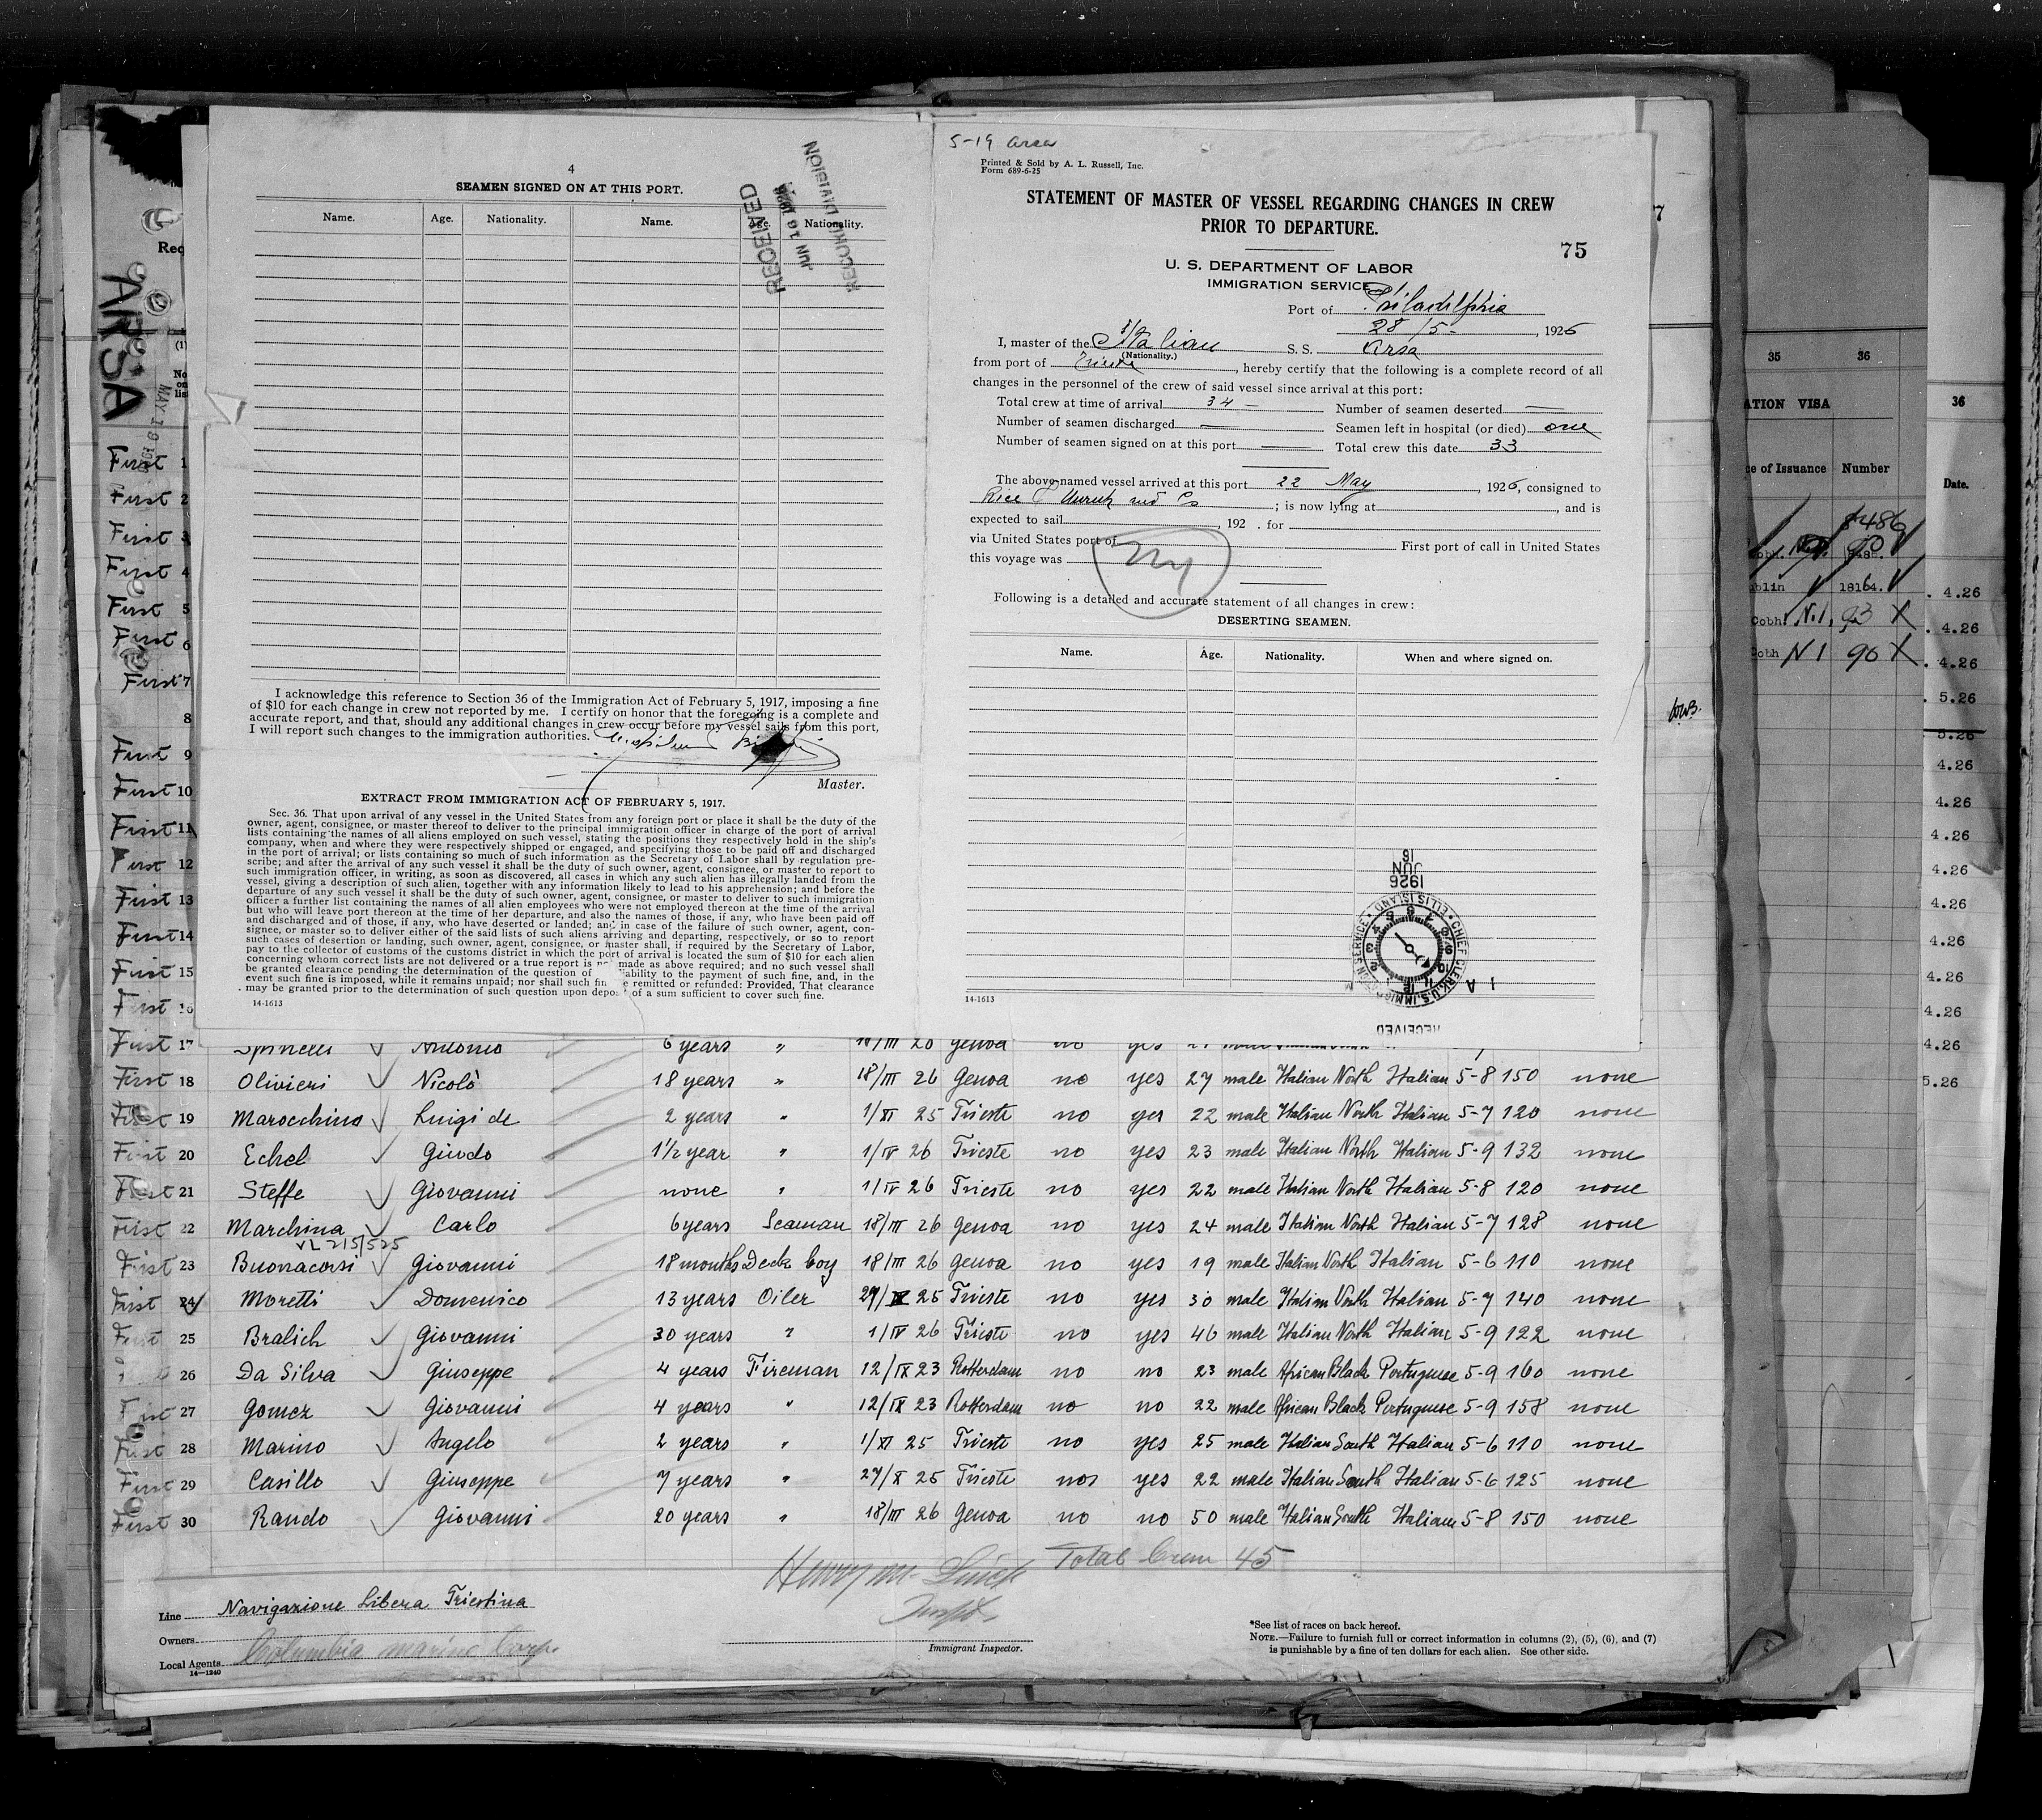 4
SEAMEN SIGNED ON AT THIS PORT.
Name. Age. Nationality. Name. Age. Nationality.
RECEIVED
JUN 16 1926
RECORD DIVISION
I acknowledge this reference to Section 36 of the Immigration Act of February 5, 1917, imposing a fine
of $10 for each change in crew not reported by me. I certify on honor that the foregoing is a complete and
accurate report, and that, should any additional changes in crew occur before my vessel sails from this port,
I will report such changes to the immigration authorities.
Master.
EXTRACT FROM IMMIGRATION ACT OF FEBRUARY 5, 1917.
Sec. 36. That upon arrival of any vessel in the United States from any foreign port or place it shall be the duty of the
owner, agent, consignee, or master thereof to deliver to the principal immigration officer in charge of the port of arrival
lists containing the names of all aliens employed on such vessel, stating the positions they respectively hold in the ship's
company, when and where they were respectively shipped or engaged, and specifying those to be paid off and discharged
in the port of arrival; or lists containing so much of such information as the Secretary of Labor shall by regulation pre-
scribe; and after the arrival of any such vessel it shall be the duty of such owner, agent, consignee, or master to report to
such immigration officer, in writing, as soon as discovered, all cases in which any such alien has illegally landed from the
vessel, giving a description of such alien, together with any information likely to lead to his apprehension; and before the
departure of any such vessel it shall be the duty of such owner, agent, consignee, or master to deliver to such immigration
officer a further list containing the names of all alien employees who were not employed thereon at the time of the arrival
but who will leave port thereon at the time of her departure, and also the names of those, if any, who have been paid off
and discharged and of those, if any, who have deserted or landed; and in case of the failure of such owner, agent, con-
signee, or master so to deliver either of the said lists of such aliens arriving and departing, respectively, or so to report
such cases of desertion or landing, such owner, agent, consignee, or master shall, if required by the Secretary of Labor,
pay to the collector of customs of the customs district in which the port of arrival is located the sum of $10 for each alien
concerning whom correct lists are not delivered or a true report is made as above required; and no such vessel shall
be granted clearance pending the determination of the question of liability to the payment of such fine, and, in the
event such fine is imposed, while it remains unpaid; nor shall such fine be remitted or refunded: Provided, That clearance
may be granted prior to the determination of such question upon deposit of a sum sufficient to cover such fine.
14-1613
5-19 Arsa
Printed & Sold by A. L. Russell, Inc.
Form 689-6-25
STATEMENT OF MASTER OF VESSEL REGARDING CHANGES IN CREW
PRIOR TO DEPARTURE.
75
U. S. DEPARTMENT OF LABOR
IMMIGRATION SERVICE
Port of Philadelphia
28/5- , 1926
I, master of the Italian S. S. Arsa
(Nationality.)
from port of Trieste, hereby certify that the following is a complete record of all
changes in the personnel of the crew of said vessel since arrival at this port:
Total crew at time of arrival 34 — Number of seamen deserted —
Number of seamen discharged — Seamen left in hospital (or died) one
Number of seamen signed on at this port — Total crew this date 33
The above-named vessel arrived at this port 22 May, 1926, consigned to
Rice Unruh and Co; is now lying at , and is
expected to sail , 192 . for
via United States port of First port of call in United States
this voyage was
NY
Following is a detailed and accurate statement of all changes in crew:
DESERTING SEAMEN.
Name. Age. Nationality. When and where signed on.
1926
JUN
16
CHIEF CLERK, U.S. IMMIGRATION SERVICE ELLIS ISLAND
RECEIVED
14-1613
ARSA
First 1
First 2
First 3
First 4
First 5
First 6
First 7
8
First 9
First 10
First 11
First 12
First 13
First 14
First 15
First 16
First 17 Spinelli Antonio 6 years " 18/III 26 Genoa no yes
First 18 Olivieri Nicolò 18 years " 18/III 26 Genoa no yes 27 male Italian North Italian 5-8 150 none
First 19 Marocchino Luigi de 2 years " 1/XI 25 Trieste no yes 22 male Italian North Italian 5-7 120 none
First 20 Echel Giudo 1½ year " 1/IV 26 Trieste no yes 23 male Italian North Italian 5-9 132 none
First 21 Steffe Giovanni none " 1/IV 26 Trieste no yes 22 male Italian North Italian 5-8 120 none
First 22 Marchina Carlo 6 years Seaman 18/III 26 Genoa no yes 24 male Italian North Italian 5-7 128 none
VL 215/525
First 23 Buonacorsi Giovanni 18 months Deck boy 18/III 26 Genoa no yes 19 male Italian North Italian 5-6 110 none
First 24 Moretti Domenico 13 years Oiler 25 Trieste no yes 30 male Italian North Italian 5-7 140 none
First 25 Bralich Giovanni 30 years " 1/IV 26 Trieste no yes 46 male Italian North Italian 5-9 122 none
26 Da Silva Giuseppe 4 years Fireman 12/IX 23 Rotterdam no no 23 male African Black Portuguese 5-9 160 none
First 27 Gomez Giovanni 4 years " 12/IX 23 Rotterdam no no 22 male African Black Portuguese 5-9 158 none
First 28 Marino Angelo 2 years " 1/XI 25 Trieste no yes 25 male Italian South Italian 5-6 110 none
First 29 Casillo Giuseppe 7 years " 27/X 25 Trieste no yes 22 male Italian South Italian 5-6 125 none
First 30 Rando Giovanni 20 years " 18/III 26 Genoa no no 50 male Italian South Italian 5-8 150 none
Total Crew 45
Line Navigazione Libera Triestina
Owners
Local Agents Columbia Marine Corp.
14-1240
Immigrant Inspector.
*See list of races on back hereof.
NOTE.—Failure to furnish full or correct information in columns (2), (5), (6), and (7)
is punishable by a fine of ten dollars for each alien. See other side.
35 36
ATION VISA
ce of Issuance Number
18164.
Cobh N.1. 93 X
Cobh N 1 90 X
36
Date.
4.26
4.26
4.26
5.26
5.26
4.26
4.26
4.26
4.26
4.26
4.26
4.26
4.26
4.26
5.26